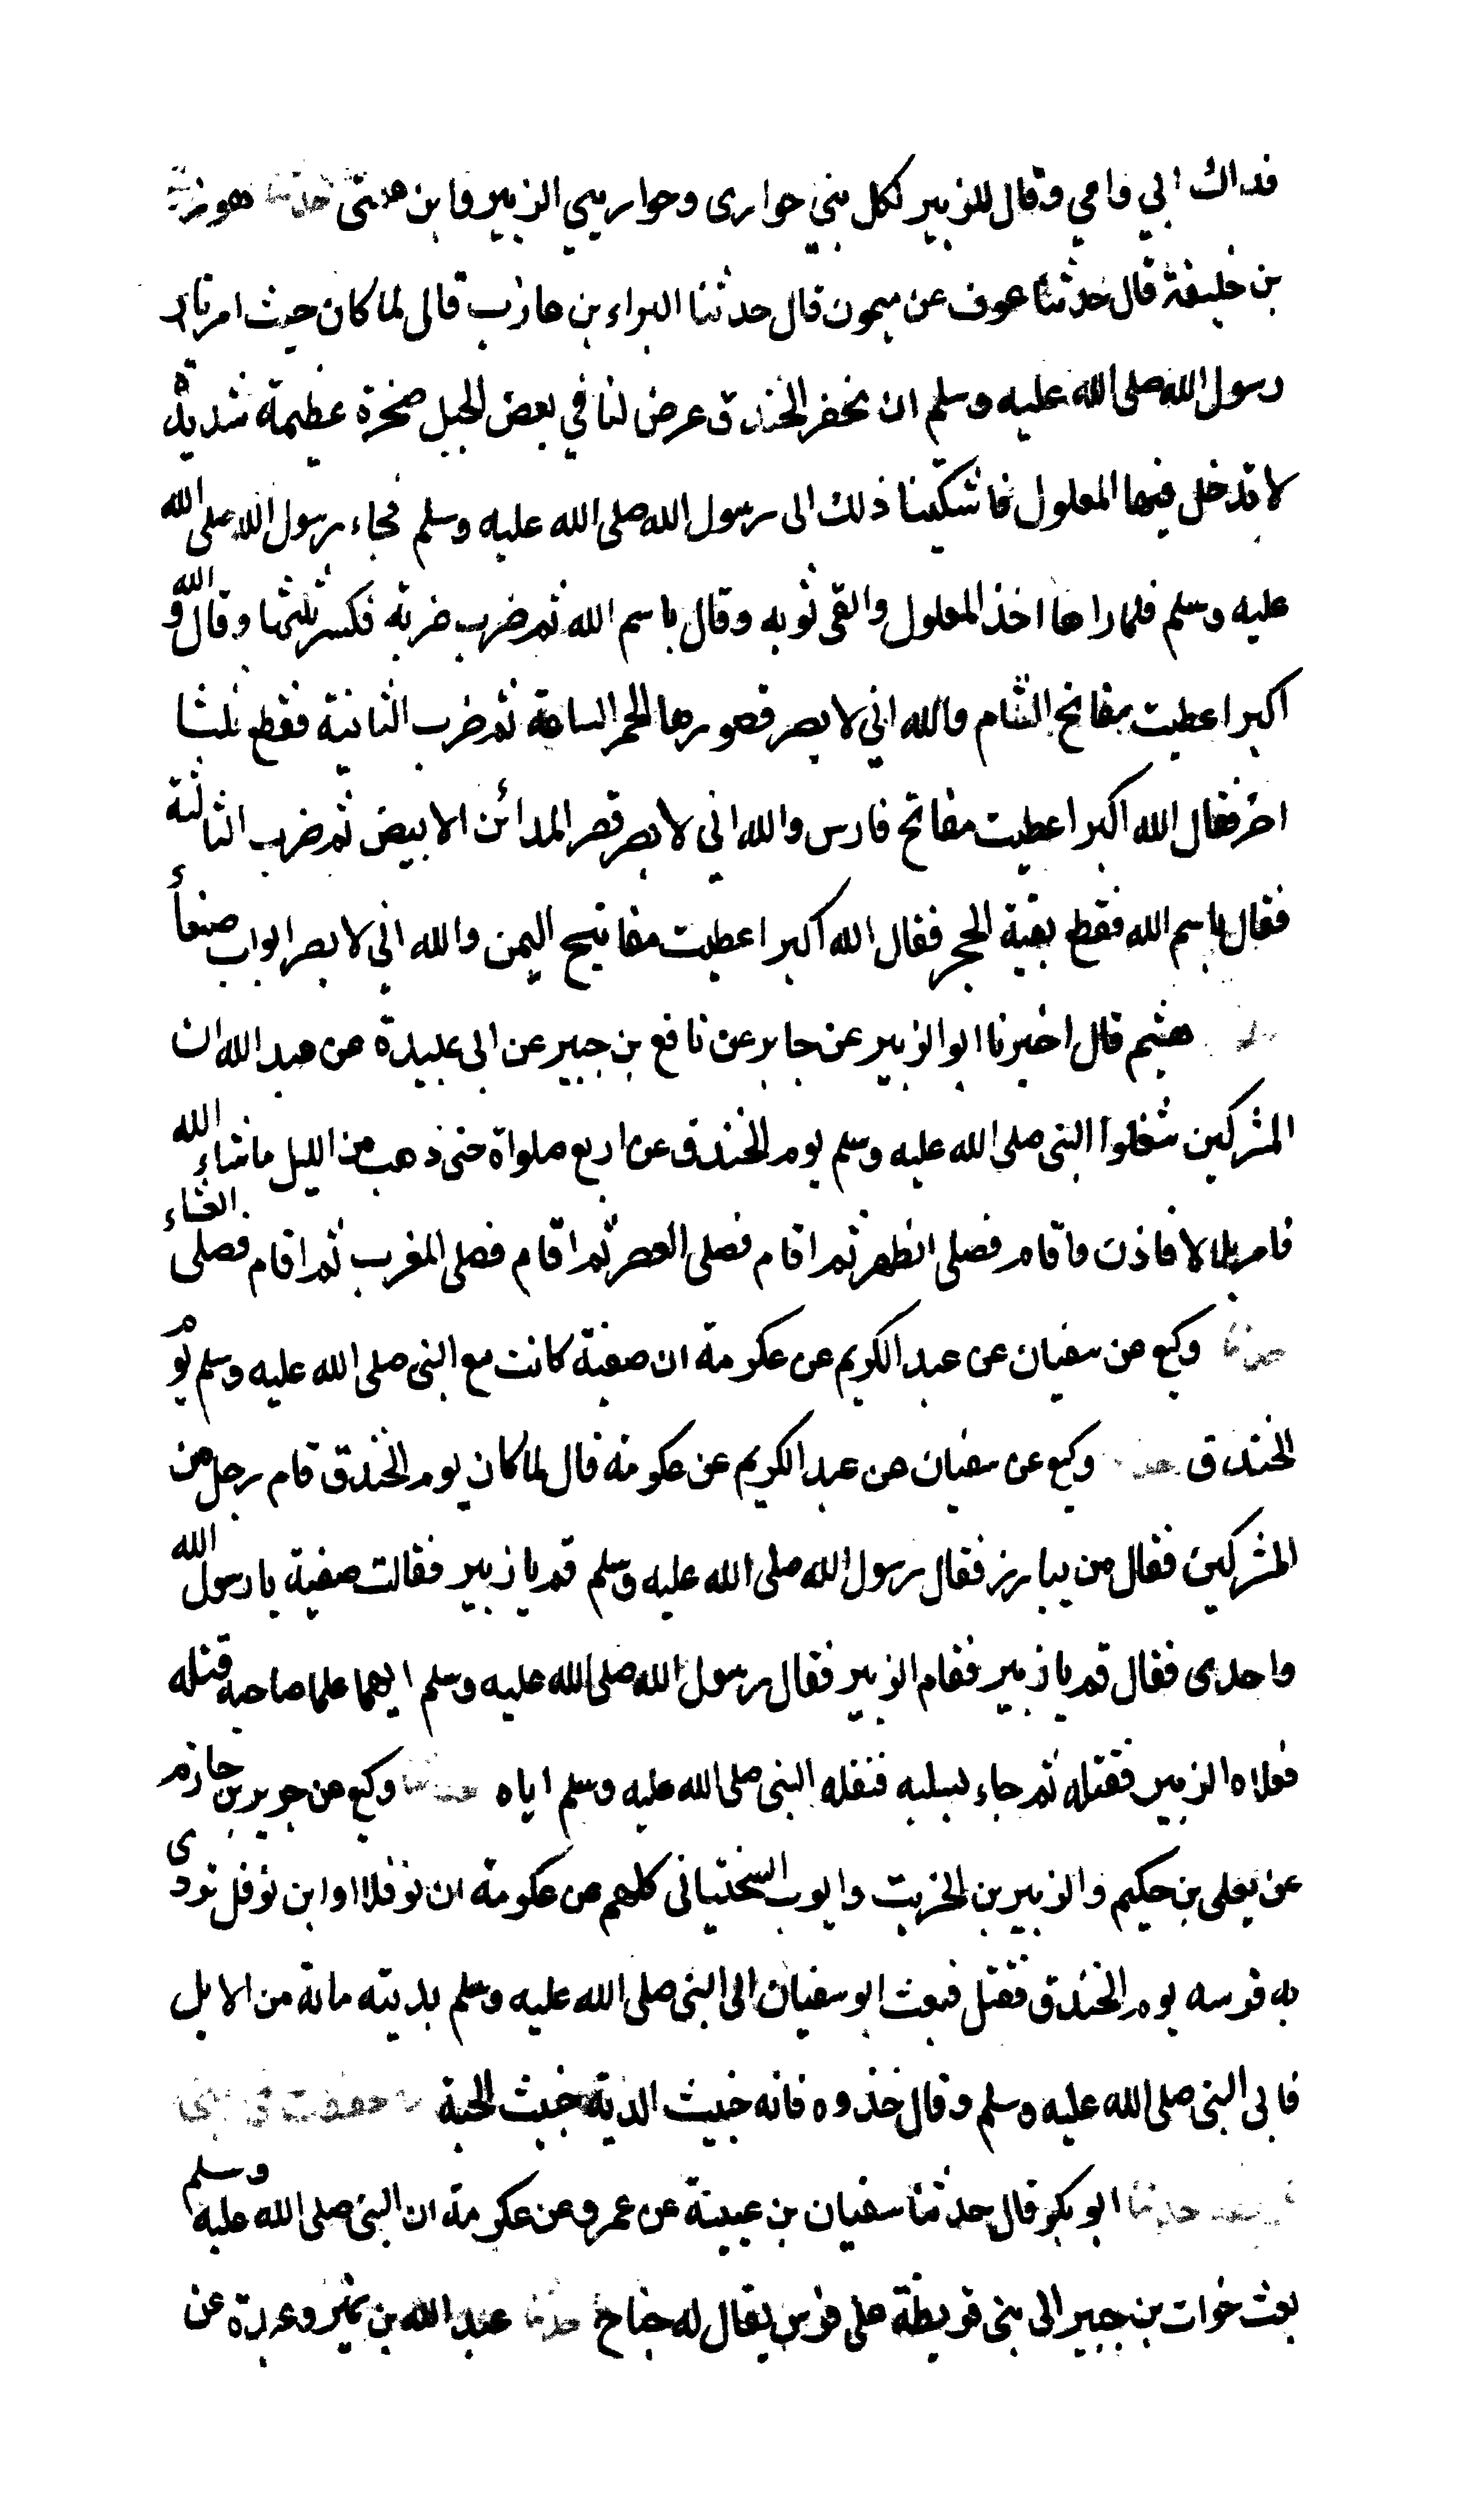 فداك ابي وامي وقال للزبير لكل نبي حواري وحواريي الزبير وابن عمتى حدثنا هوذة
بن خليفة قال حدثنا عوف عن ميمون قال حدثنا البراء بن عازب قال لما كان حيث امرنا
رسول الله صلى الله عليه وسلم ان نحفر الخندق عرض لنا في بعض الجبل صخرة عظيمة شديدة
لا تدخل فيها المعلول فاشتكينا ذلك الى رسول الله صلى الله عليه وسلم فجاء رسول الله صلى الله
عليه وسلم فلما راها اخذ المعلول والقى ثوبه وقال باسم الله ثم ضرب ضربة فكسر ثلثها وقال الله
اكبر اعطيت مفاتح الشام والله اني لابصر قصورها الحمر الساعة ثم ضرب الثانية فقطع ثلثا
اخر فقال الله اكبر اعطيت مفاتح فارس والله اني لابصر قصر المدائن الابيض ثم ضرب الثالثة
فقال باسم الله فقطع بقية الحجر فقال الله اكبر اعطيت مفاتيح اليمن والله اني لابصر ابواب صنعاء
هشيم قال اخبرنا ابو الزبير عن جابر عن نافع بن جبير عن ابي عبيدة عن عبد الله ان
المشركين شغلوا النبي صلى الله عليه وسلم يوم الخندق عن اربع صلواة حتى ذهب من الليل ما شاء الله
فامر بلالا فاذن واقام فصلى الظهر ثم اقام فصلى العصر ثم اقام فصلى المغرب ثم اقام فصلى العشاء
حدثنا وكيع عن سفيان عن عبد الكريم عن عكرمة ان صفية كانت مع النبي صلى الله عليه وسلم يوم
الخندق حدثنا وكيع عن سفيان عن عبد الكريم عن عكرمة قال لما كان يوم الخندق قام رجل من
المشركين فقال من يبارز فقال رسول الله صلى الله عليه وسلم قم يا زبير فقالت صفية يا رسول الله
واحدى فقال قم يا زبير فقام الزبير فقال رسول الله صلى الله عليه وسلم ايهما علا صاحبه قتله
فعلاه الزبير فقتله ثم جاء بسلبه فنفله النبي صلى الله عليه وسلم اياه حدثنا وكيع عن جرير بن حازم
عن يعلى بن حكيم والزبير بن الخريت وايوب السختياني كلهم عن عكرمة ان نوفلا او ابن نوفل تردى
به فرسه يوم الخندق فقتل فبعث ابو سفيان الى النبي صلى الله عليه وسلم بديته مائة من الابل
فابى النبي صلى الله عليه وسلم وقال خذوه فانه خبيث الدية خبيث الجثة ما حفظت في بني
حدثنا ابو بكر قال حدثنا سفيان بن عيينة عن عمرو عن عكرمة ان النبي صلى الله عليه وسلم
بعث خوات بن جبير الى بني قريظة على فرس يقال له جناح حدثنا عبد الله بن نمير وعبدة عن